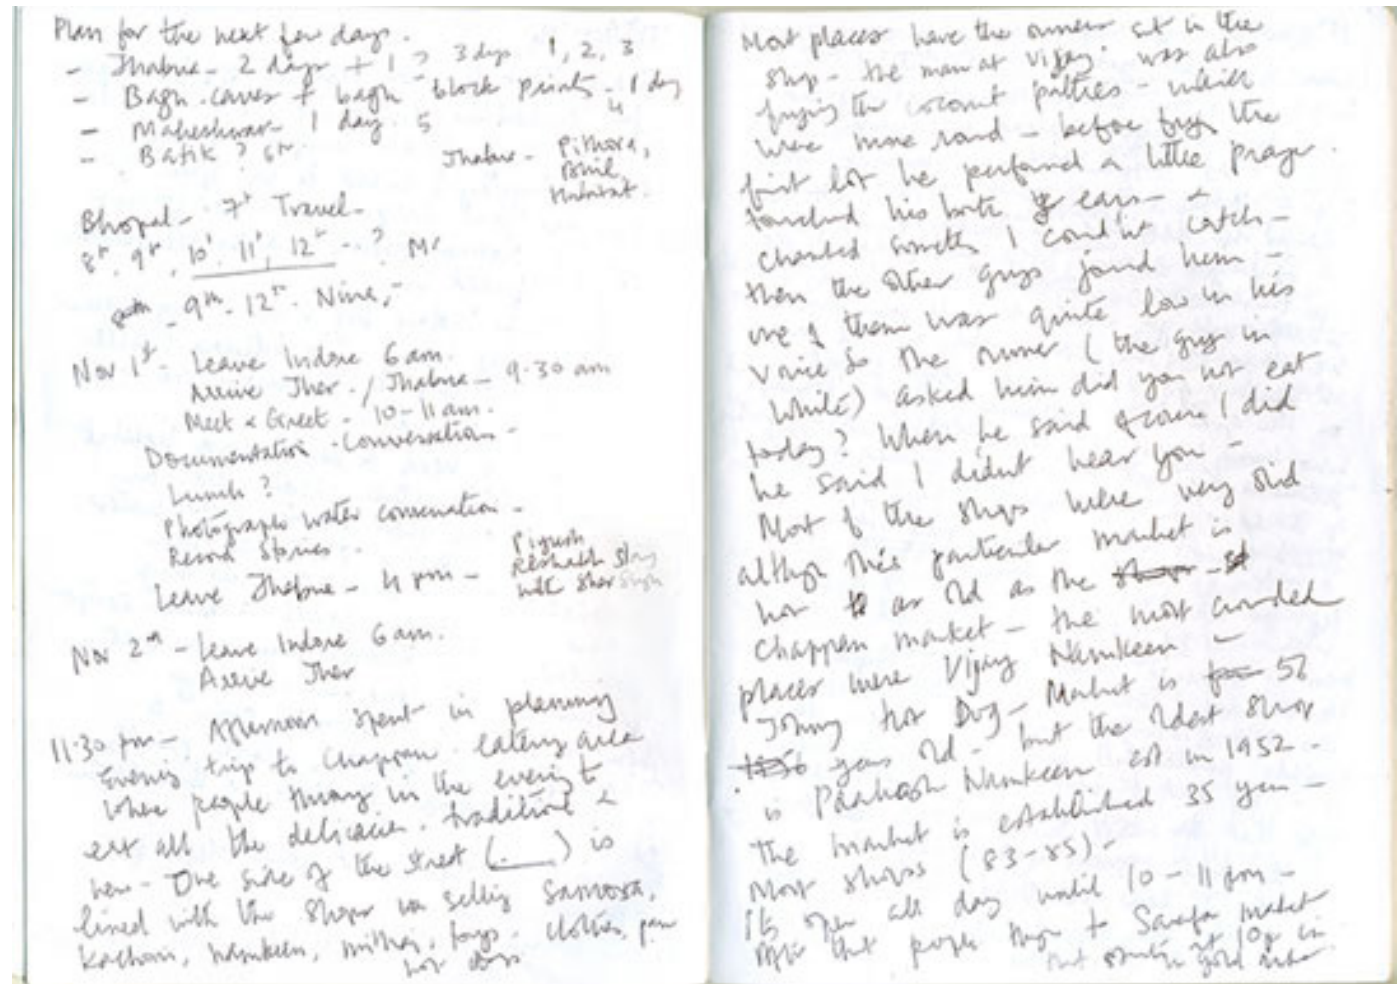 Plan for the next few days.
- Jhabua - 2 days + 1 → 3 days 1, 2, 3
- Bagh caves + bagh block prints - 1 day
4
- Maheshwar - 1 day 5
- Batik ? 6th
Jhabua - Pithora,
Bhil,
Habitat
Bhopal - 7th Travel -
8th, 9th, 10th, 11th, 12th - ?
9th - 12th
Nov 1st - Leave Indore 6 am.
Arrive Jher / Jhabua - 9.30 am
Meet & Greet - 10 - 11 am.
Documentation - Conversation -
Lunch ?
Photograph water conservation -
Record Stories.
Leave Jhabua - 4 pm -
Piyush
with
Nov 2nd - Leave Indore 6 am.
Arrive Jher
11.30 pm - Afternoon spent in planning
Evening trip to Chappan - eating area
where people throng in the evening to
eat all the delicacies - traditional &
new - One side of the street (.___) is
lined with the shops selling Samosa,
kachori, namkeen, mithai, toys, clothes,
hot dogs
Most places have the owners sit in the
shop - the man at Vijay was also
frying the coconut patties - which
were round - before frying the
first lot he performed a little prayer.
touched his ears -
chanted something I couldn't catch -
then the other guys joined him -
one of them was quite low in his
voice so the owner (the guy in
white) asked him did you not eat
today? When he said of course I did
he said I didn't hear you -
Most of the shops were very old
although this particular market is
not as old as the
Chappan market - the most crowded
places were Vijay Namkeen -
Johny Hot Dog - Market is
years old - but the oldest shop
is Prakash Namkeen est in 1952 -
The market is established 35 years -
Most shops (83-85) -
Its open all day until 10 - 11 pm -
After that people throng to Sarafa market
that starts at 10pm in
gold